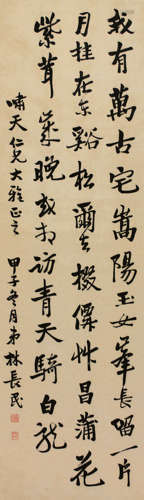 我有萬古宅嵩陽玉女峯長留一片
月挂在東谿松爾去掇僊艸昌蒲花
紫茸歲晚或相訪青天騎白龍
嘯天仁兄大雅正之 甲子冬月弟林長民